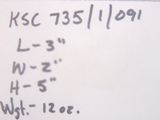 KSC 735/1/091
L-3"
W-2"
H-5"
Wgt.-12 oz.